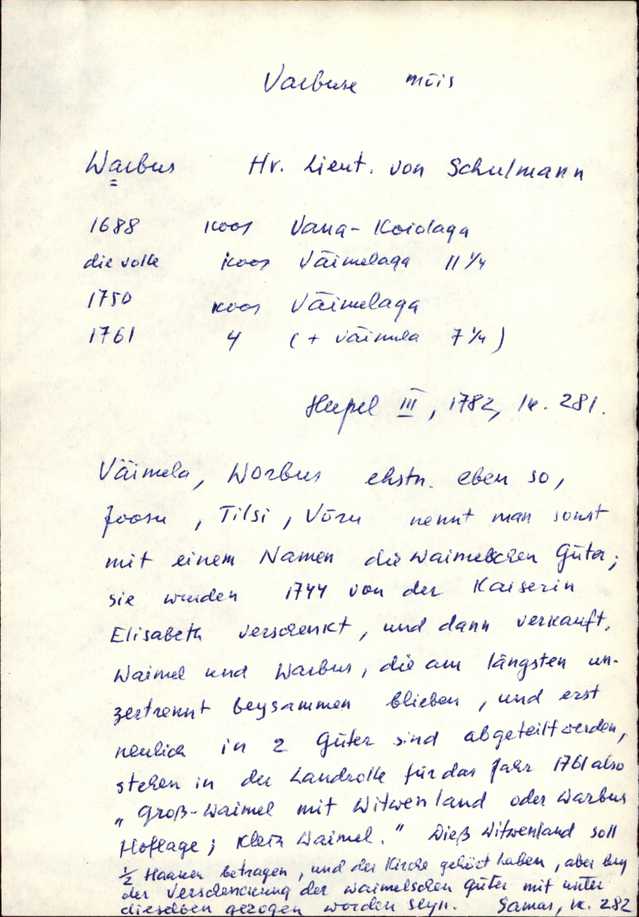 Varbuse mõis
Warbus Hr. Lieut. von Schulmann
1688 koos Vana-Koiolaga
die volle koos Väimelaga 11 1/4
1750 koos Väimelaga
1761 4 (+ Väimela 7 1/4)
Hupel III, 1782, lk. 281.
Väimela, Worbus ehstn. eben so,
Joosu, Tilsi, Võru nennt man sonst
mit einem Namen die Waimelschen Güter;
sie wurden 1744 von der Kaiserin
Elisabeth verschenkt, und dann verkauft.
Waimel und Warbus, die am längsten un-
zertrennt beysammen blieben, und erst
neulich in 2 Güter sind abgeteilt werden,
stehen in der Landrolle für das Jahr 1761 also
„Groß-Waimel mit Witwenland oder Warbus
Hoflage; Klein Waimel." Dieß Witwenland soll
1/2 Haaken betragen, und der Kirche gehört haben, aber bey
der Verschenckung der Waimelschen Güter mit unter
dieselben gezogen worden seyn. Samas, lk. 282